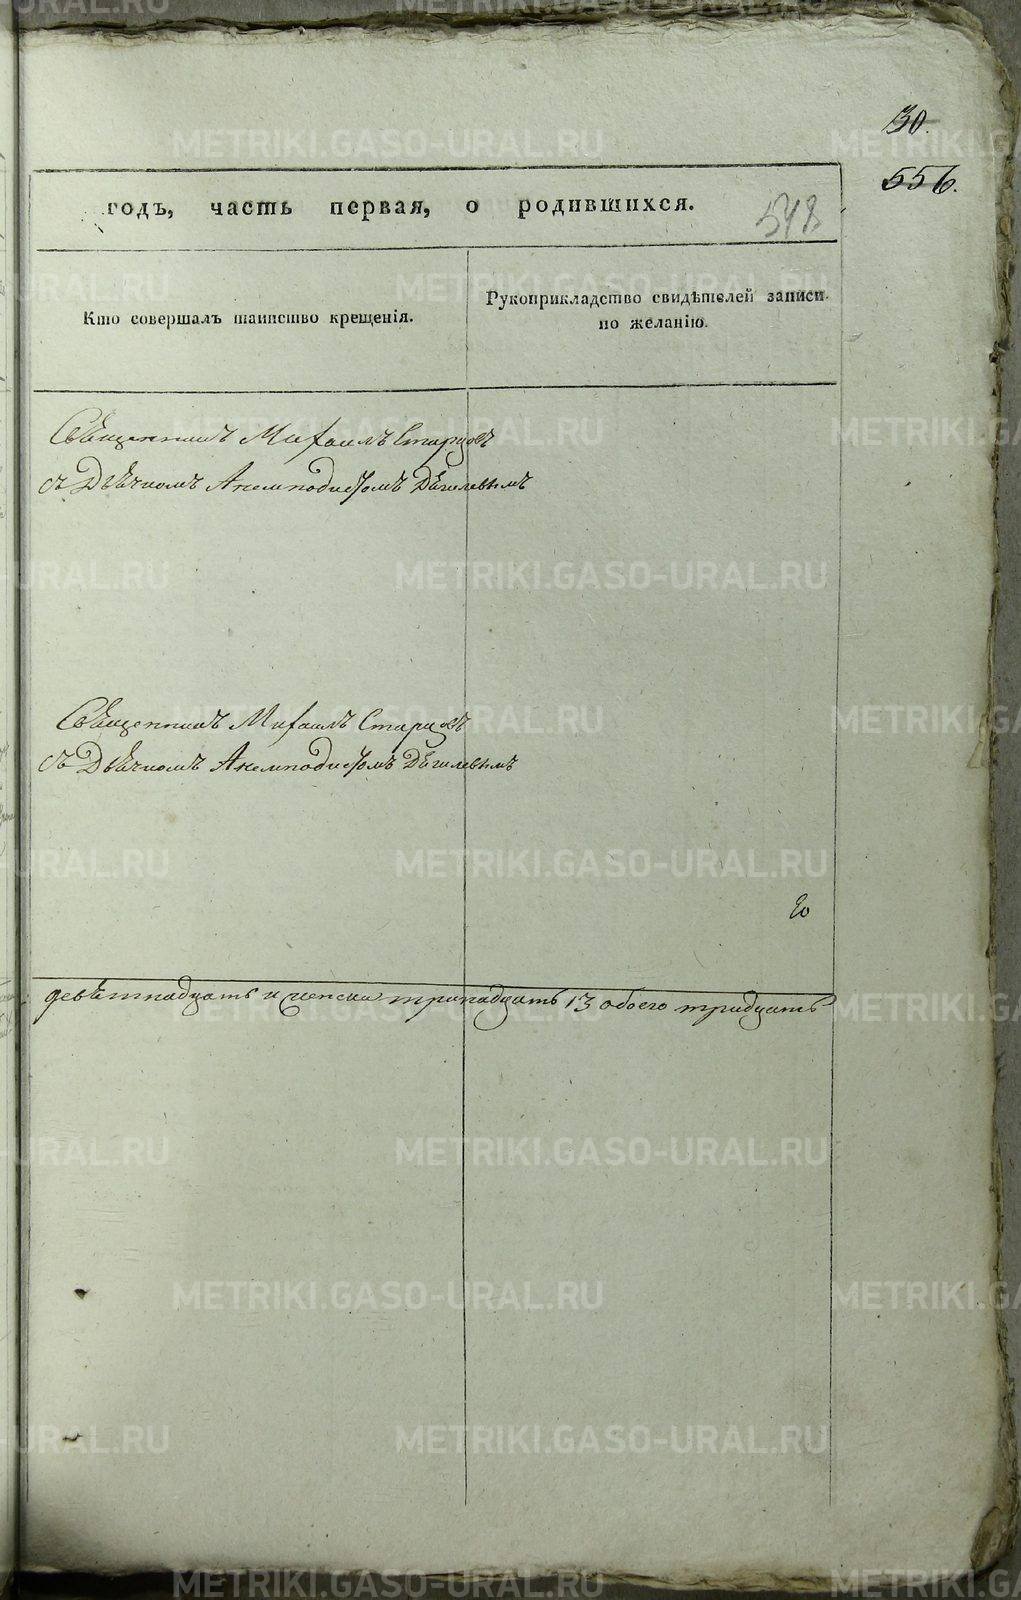 30.
556.
годъ, часть первая, о родившихся.
548
Кто совершалъ таинство крещенія.
Рукоприкладство свидѣтелей записи
по желанію.
Священникъ Михаилъ Старцовъ
съ Дьячкомъ Анемподистомъ Дягилевымъ
Священникъ Михаилъ Старцовъ
съ Дьячкомъ Анемподистомъ Дягилевымъ
девятнадцать и женска тринадцать 13 обоего тридцать
METRIKI.GASO-URAL.RU